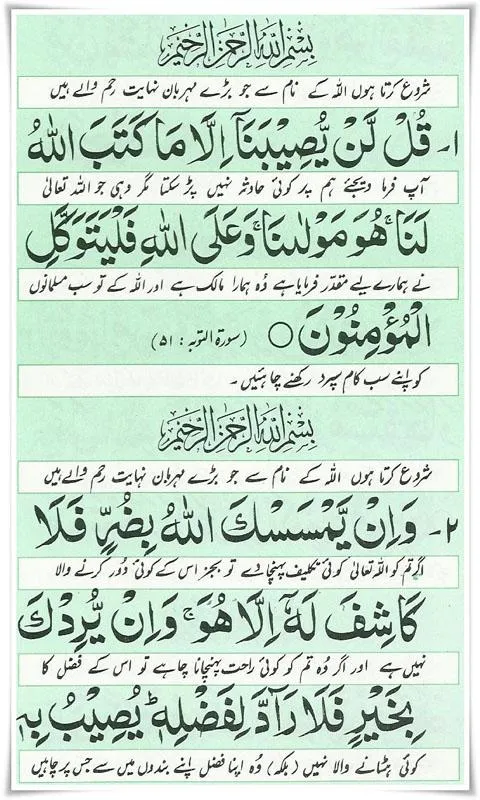 بِسْمِ اللّٰهِ الرَّحْمٰنِ الرَّحِيْمِ
شروع کرتا ہوں اللہ کے نام سے جو بڑے مہربان نہایت رحم والے ہیں
۱۔ قُلْ لَّنْ يُّصِيْبَنَآ اِلَّا مَا كَتَبَ اللّٰهُ
آپ فرما دیجئے ہم پر کوئی حادثہ نہیں پڑ سکتا مگر وہی جو اللہ تعالیٰ
لَنَا ۚ هُوَ مَوْلٰىنَا ۚ وَعَلَى اللّٰهِ فَلْيَتَوَكَّلِ
نے ہمارے لیے مقدر فرمایا ہے وُہ ہمارا مالک ہے اور اللہ کے تو سب مسلمانوں
الْمُؤْمِنُوْنَ ○ (سورۃ التوبہ : ۵۱)
کو اپنے سب کام سپرد رکھنے چاہئیں۔
بِسْمِ اللّٰهِ الرَّحْمٰنِ الرَّحِيْمِ
شروع کرتا ہوں اللہ کے نام سے جو بڑے مہربان نہایت رحم والے ہیں
۲۔ وَاِنْ يَّمْسَسْكَ اللّٰهُ بِضُرٍّ فَلَا
اگر تم کو اللہ تعالیٰ کوئی تکلیف پہنچا دے تو بجز اس کے کوئی دُور کرنے والا
كَاشِفَ لَهٗٓ اِلَّا هُوَ ۚ وَاِنْ يُّرِدْكَ
نہیں ہے اور اگر وُہ تم کو کوئی راحت پہنچانا چاہے تو اس کے فضل کا
بِخَيْرٍ فَلَا رَآدَّ لِفَضْلِهٖ ؕ يُصِيْبُ بِهٖ
کوئی ہٹانے والا نہیں (بلکہ) وُہ اپنا فضل اپنے بندوں میں سے جس پر چاہیں